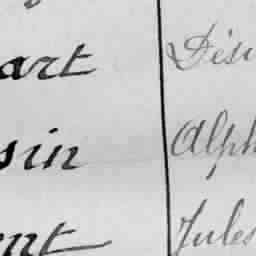 art Dési
sin Alph
ent Jules